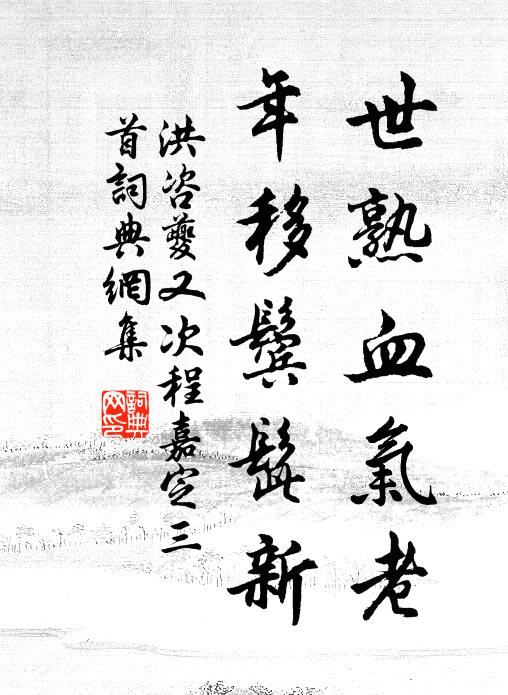 世熟血氣老
年移鬢髭新
洪咨夔又次程嘉定三
首詞典網集
詞典
网印